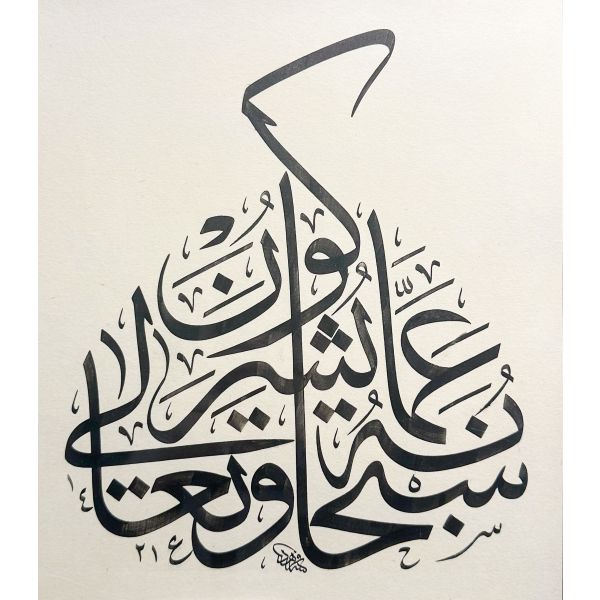 سبحانه وتعالى عَمَّا يشركون
١٤٢١